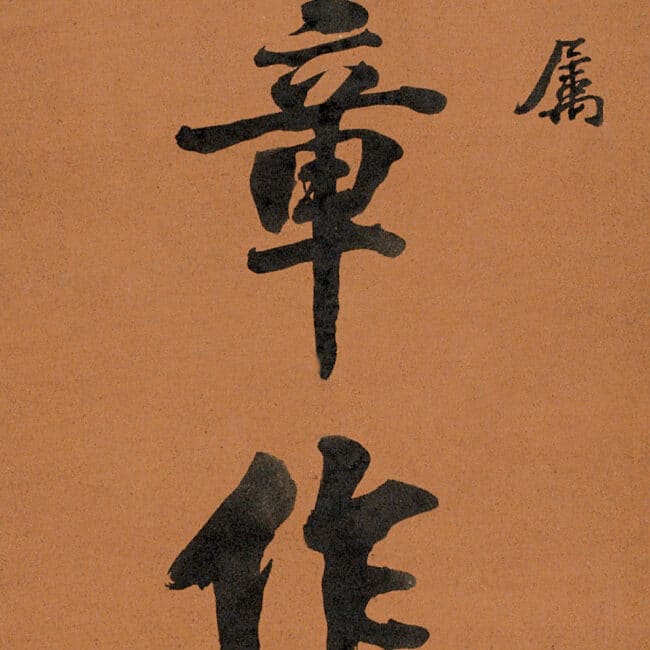 属
章作